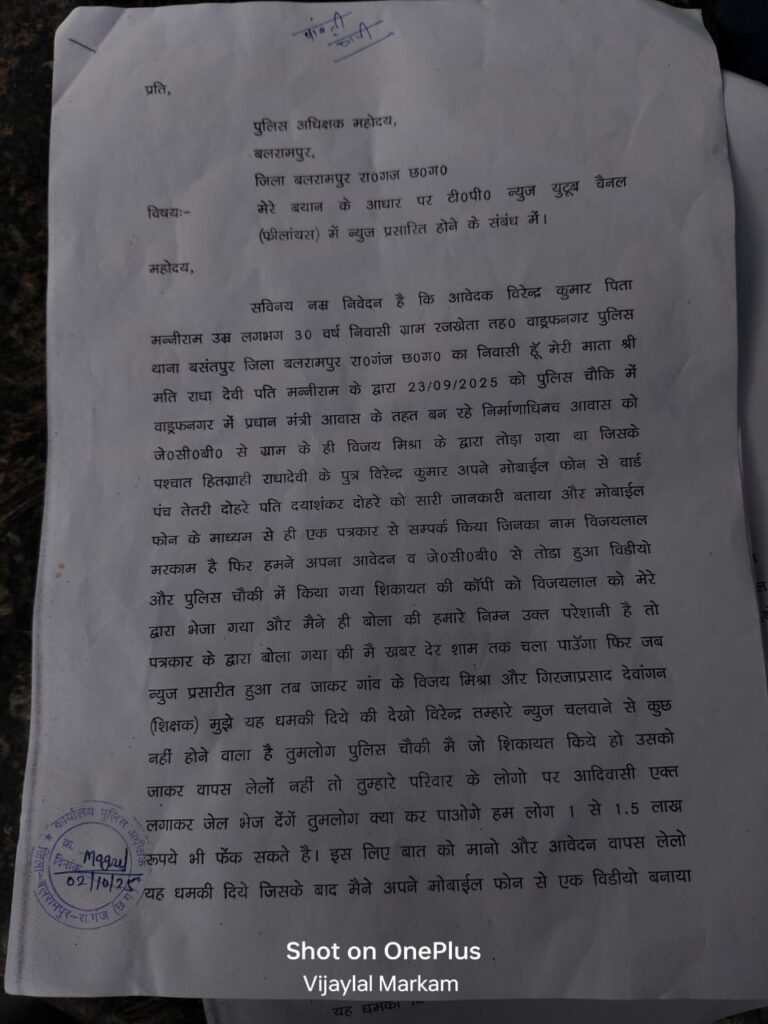 पांवती
कापी
प्रति,
पुलिस अधिक्षक महोदय,
बलरामपुर,
जिला बलरामपुर रा0गज छ0ग0
विषयः- मेरे बयान के आधार पर टी0पी0 न्युज युटूब चैनल
(फीलांयस) में न्युज प्रसारित होने के संबंध में।
महोदय,
सविनय नम्र निवेदन है कि आवेदक विरेन्द्र कुमार पिता
मन्नीराम उम्र लगभग 30 वर्ष निवासी ग्राम रजखेता तह0 वाड्रफनगर पुलिस
थाना बसंतपुर जिला बलरामपुर रा0गंज छ0ग0 का निवासी हूॅ मेरी माता श्री
मति राधा देवी पति मन्नीराम के द्वारा 23/09/2025 को पुलिस चौकि में
वाड्रफनगर में प्रधान मंत्री आवास के तहत बन रहे निर्माणाधिनच आवास को
जे0सी0बी0 से ग्राम के ही विजय मिश्रा के द्वारा तोड़ा गया था जिसके
पश्चात हितग्राही राधादेवी के पुत्र विरेन्द्र कुमार अपने मोबाईल फोन से वार्ड
पंच तेतरी दोहरे पति दयाशंकर दोहरे को सारी जानकारी बताया और मोबाईल
फोन के माध्यम से ही एक पत्रकार से सम्पर्क किया जिनका नाम विजयलाल
मरकाम है फिर हमने अपना आवेदन व जे0सी0बी0 से तोडा हुआ विडीयो
और पुलिस चौकी में किया गया शिकायत की कॉपी को विजयलाल को मेरे
द्वारा भेजा गया और मैने ही बोला की हमारे निम्न उक्त परेशानी है तो
पत्रकार के द्वारा बोला गया की मै खबर देर शाम तक चला पाउॅगा फिर जब
न्युज प्रसारीत हुआ तब जाकर गांव के विजय मिश्रा और गिरजाप्रसाद देवांगन
(शिक्षक) मुझे यह धमकी दिये की देखो विरेन्द्र तम्हारे न्युज चलवाने से कुछ
नहीं होने वाला है तुमलोग पुलिस चौकी मै जो शिकायत किये हो उसको
जाकर वापस लेलों नहीं तो तुम्हारे परिवार के लोगो पर आदिवासी एक्त
लगाकर जेल भेज देंगें तुमलोग क्या कर पाओगे हम लोग 1 से 1.5 लाख
रूपये भी फेंक सकते है। इस लिए बात को मानो और आवेदन वापस लेलो
यह धमकी दिये जिसके बाद मैने अपने मोबाईल फोन से एक विडीयो बनाया
कार्यालय पुलिस अधीक्षक
क्र.
दिनांक
02/10/25
जिला-बलरामपुर-रा.गंज (छ.ग.)
यह धमकी
Shot on OnePlus
Vijaylal Markam